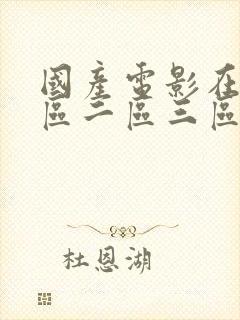 國產電影在
區二區三區
杜恩湖